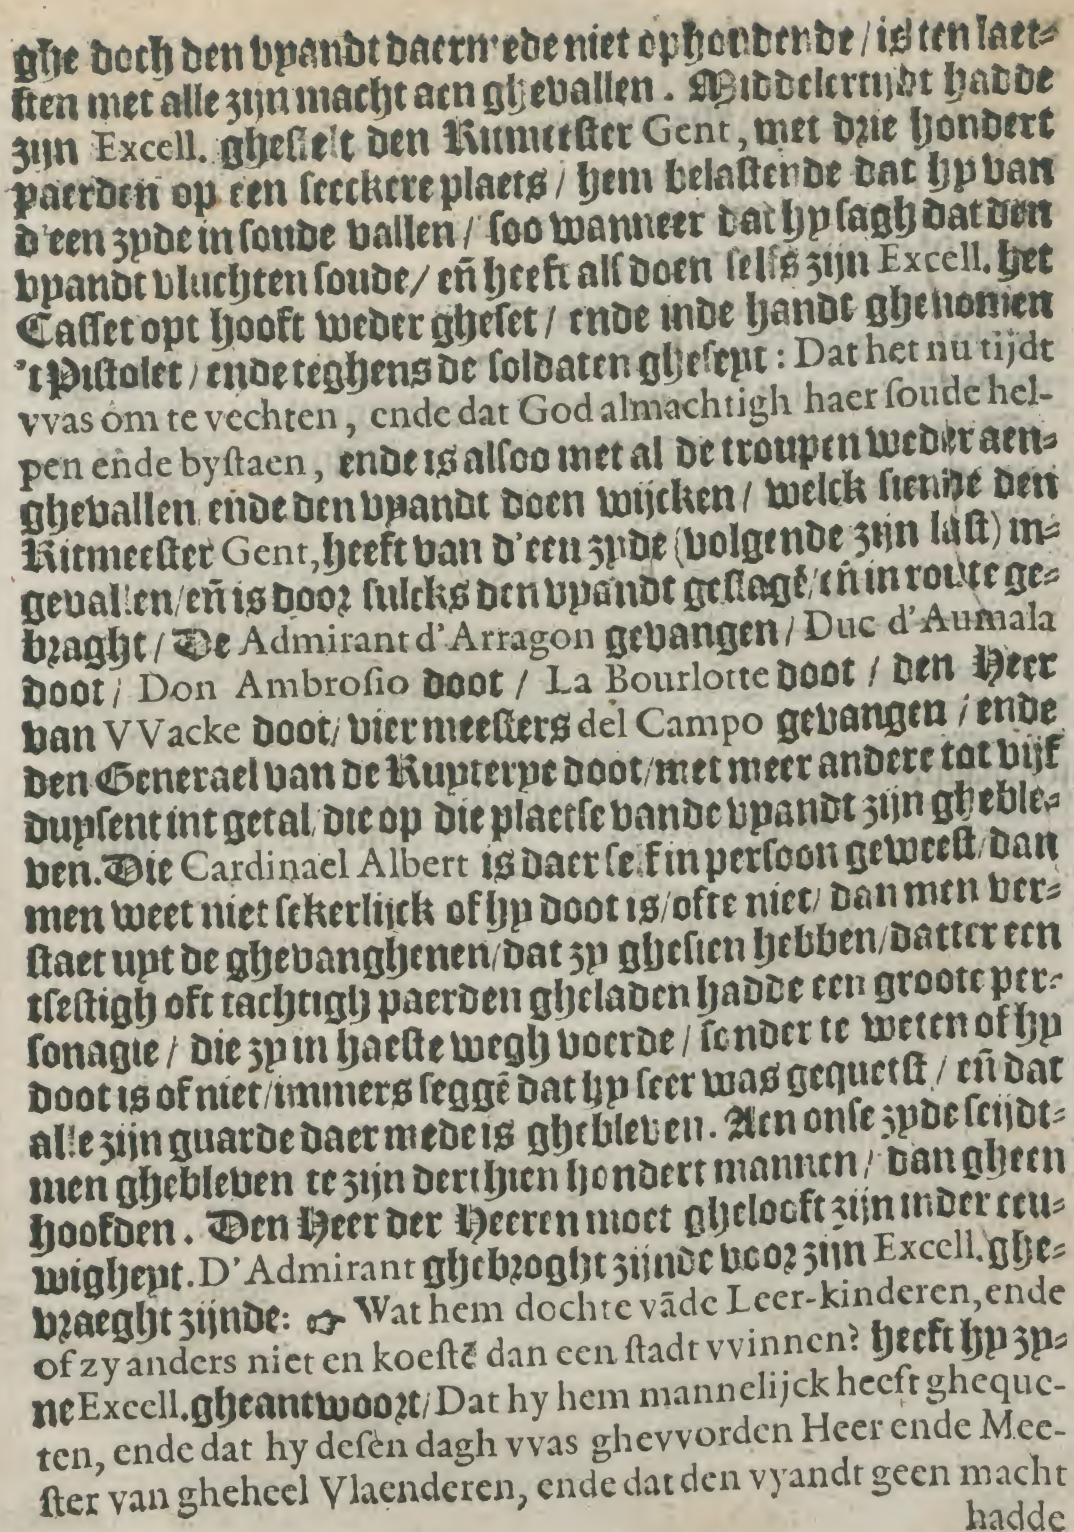 ghe doch den vyandt daermede niet ophoudende / is ten laet-
sten met alle zijn macht aen ghevallen. Middelertijdt hadde
zijn Excell. ghestelt den Ritmeester Gent, met drie hondert
paerden op een seeckere plaets / hem belastende dat hy van
d'een zyde in soude vallen / soo wanneer dat hy sagh dat den
vyandt vluchten soude / eñ heeft alsdoen selfs zijn Excell. het
Casset opt hooft weder gheset / ende inde handt ghenomen
't Pistolet / ende teghens de soldaten gheseyt: Dat het nu tijdt
vvas om te vechten, ende dat God almachtigh haer soude hel-
pen ende bystaen, ende is alsoo met al de troupen weder aen-
ghevallen ende den vyandt doen wijcken / welck siende den
Ritmeester Gent, heeft van d'een zyde (volgende zijn last) in-
gevallen / eñ is door sulcks den vyandt geslagē / eñ in route ge-
braght / De Admirant d'Arragon gevangen / Duc d'Aumala
doot / Don Ambrosio doot / La Bourlotte doot / den Heer
van VVacke doot / vier meesters del Campo gevangen / ende
den Generael van de Ruyterye doot / met meer andere tot vijf
duysent int getal / die op die plaetse vande vyandt zijn gheble-
ven. Die Cardinael Albert is daer self in persoon geweest / dan
men weet niet sekerlijck of hy doot is / ofte niet / dan men ver-
staet uyt de ghevanghenen / dat zy ghesien hebben / datter een
tsestigh oft tachtigh paerden gheladen hadde een groote per-
sonagie / die zy in haeste wegh voerde / sonder te weten of hy
doot is of niet / immers seggē dat hy seer was gequetst / eñ dat
alle zijn guarde daer mede is ghebleven. Aen onse zyde seijdt-
men ghebleven te zijn derthien hondert mannen / dan gheen
hoofden. Den Heer der Heeren moet ghelooft zijn inder eeu-
wigheyt. D'Admirant ghebroght zijnde voor zijn Excell. ghe-
vraeght zijnde: ☞ Wat hem dochte vāde Leer-kinderen, ende
of zy anders niet en koestē dan een stadt vvinnen? heeft hy zy-
ne Excell. gheantwoort / Dat hy hem mannelijck heeft gheque-
ten, ende dat hy desen dagh vvas ghevvorden Heer ende Mee-
ster van gheheel Vlaenderen, ende dat den vyandt geen macht
hadde